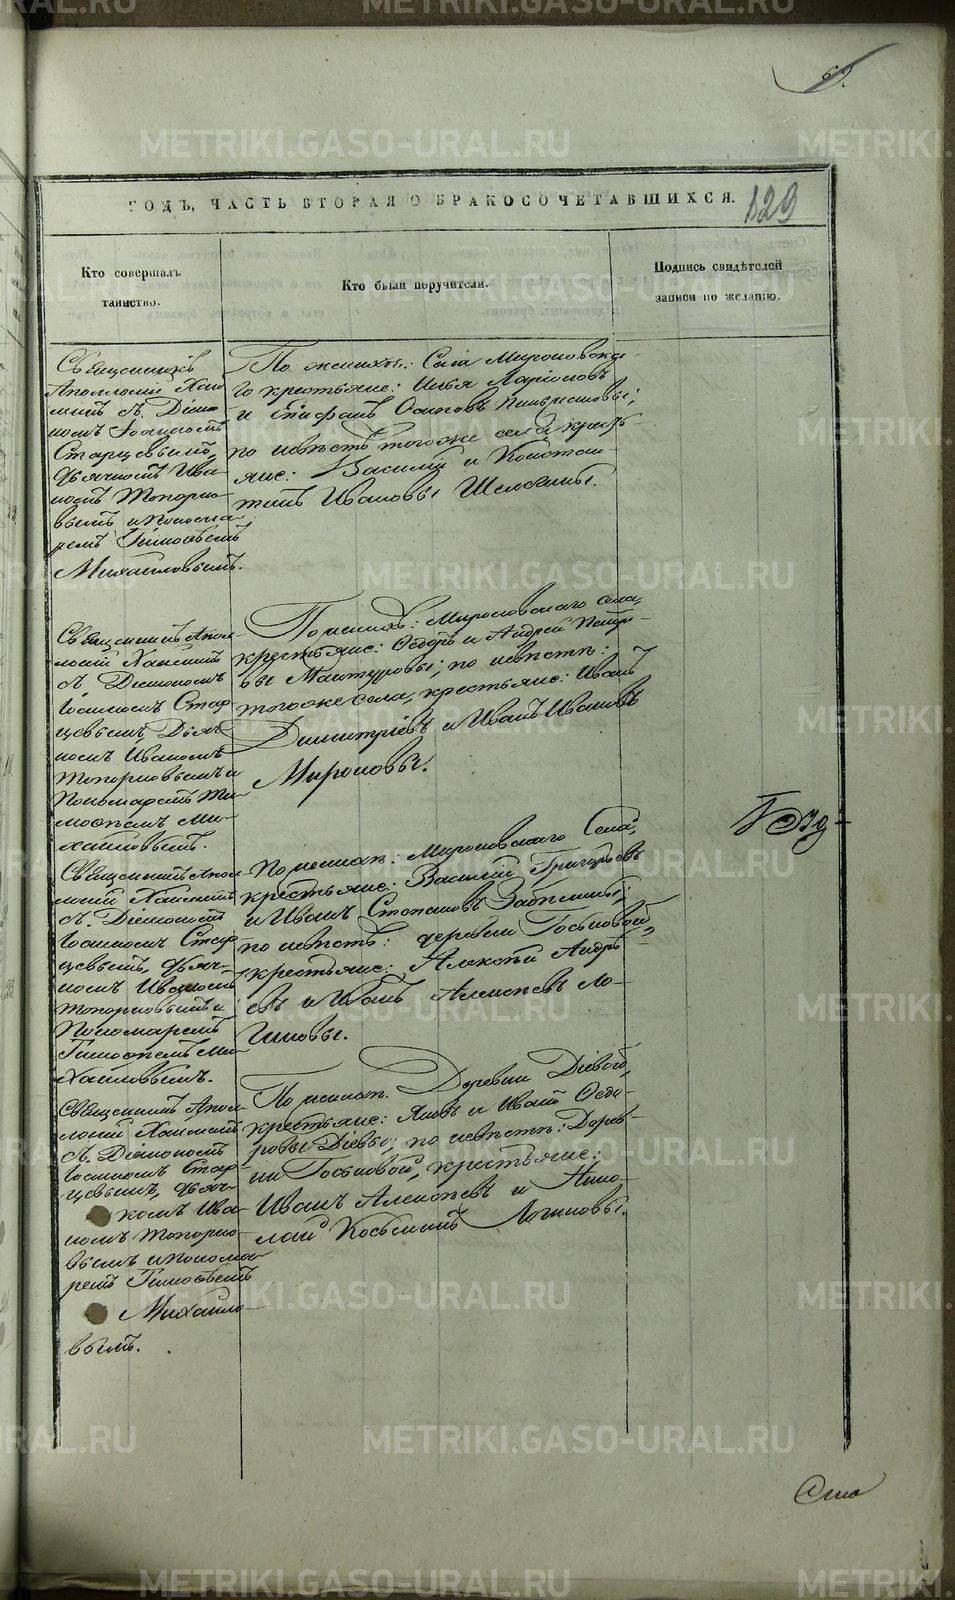 69.
ГОДЪ, ЧАСТЬ ВТОРАЯ О БРАКОСОЧЕТАВШИХСЯ.
129
Кто совершалъ
таинство.
Кто были поручители.
Подпись свидѣтелей
записи по желанію.
Священникъ
Аполлоній
съ Діако-
номъ Іоанномъ
Старцевымъ,
дьячкомъ Ива-
номъ Топорко-
вымъ и понома-
ремъ Тимоѳеемъ
Михайловымъ.
По женихѣ: Села Мироновска-
го крестьяне: Илья Ларіоновъ
и Епифанъ Осиповъ
по невѣстѣ тогоже села кресть-
яне: Василій и Констан-
тинъ Ивановы
Священникъ Апол-
лоній
съ Діакономъ
Іоанномъ Стар-
цевымъ Дьяч-
комъ Иваномъ
Топорковымъ и
Пономаремъ Ти-
моѳеемъ Ми-
хайловымъ.
По женихѣ: Мироновскаго села,
крестьяне: Ѳедоръ и Андрей Петро-
вы Мантуровы; по невѣстѣ:
тогоже села, крестьяне: Иванъ
Димитріевъ и Иванъ Ивановъ
Мироновы.
Священникъ Апол-
лоній
съ Діакономъ
Іоанномъ Стар-
цевымъ, дьяч-
комъ Иваномъ
Топорковымъ и
Пономаремъ
Тимоѳеемъ Ми-
хайловымъ.
По женихѣ: Мироновскаго Села,
крестьяне: Василій Григорьевъ
и Иванъ Степановъ
по невѣстѣ: деревни Гостьковой,
крестьяне: Алексѣй Андре-
евъ и Иванъ Алексѣевъ Ло-
гиновы.
Священникъ Апол-
лоній
съ Діакономъ
Іоанномъ Стар-
цевымъ, дьяч-
комъ Ива-
номъ Топорко-
вымъ и понома-
ремъ Тимоѳеемъ
Михайло-
вымъ.
По женихѣ. Деревни Діевой,
крестьяне: Яковъ и Иванъ Ѳедо-
ровы Діевы; по невѣстѣ: Дерев-
ни Гостьковой, крестьяне:
Иванъ Алексѣевъ и Нико-
лай Косьминъ Логиновы.
METRIKI.GASO-URAL.RU